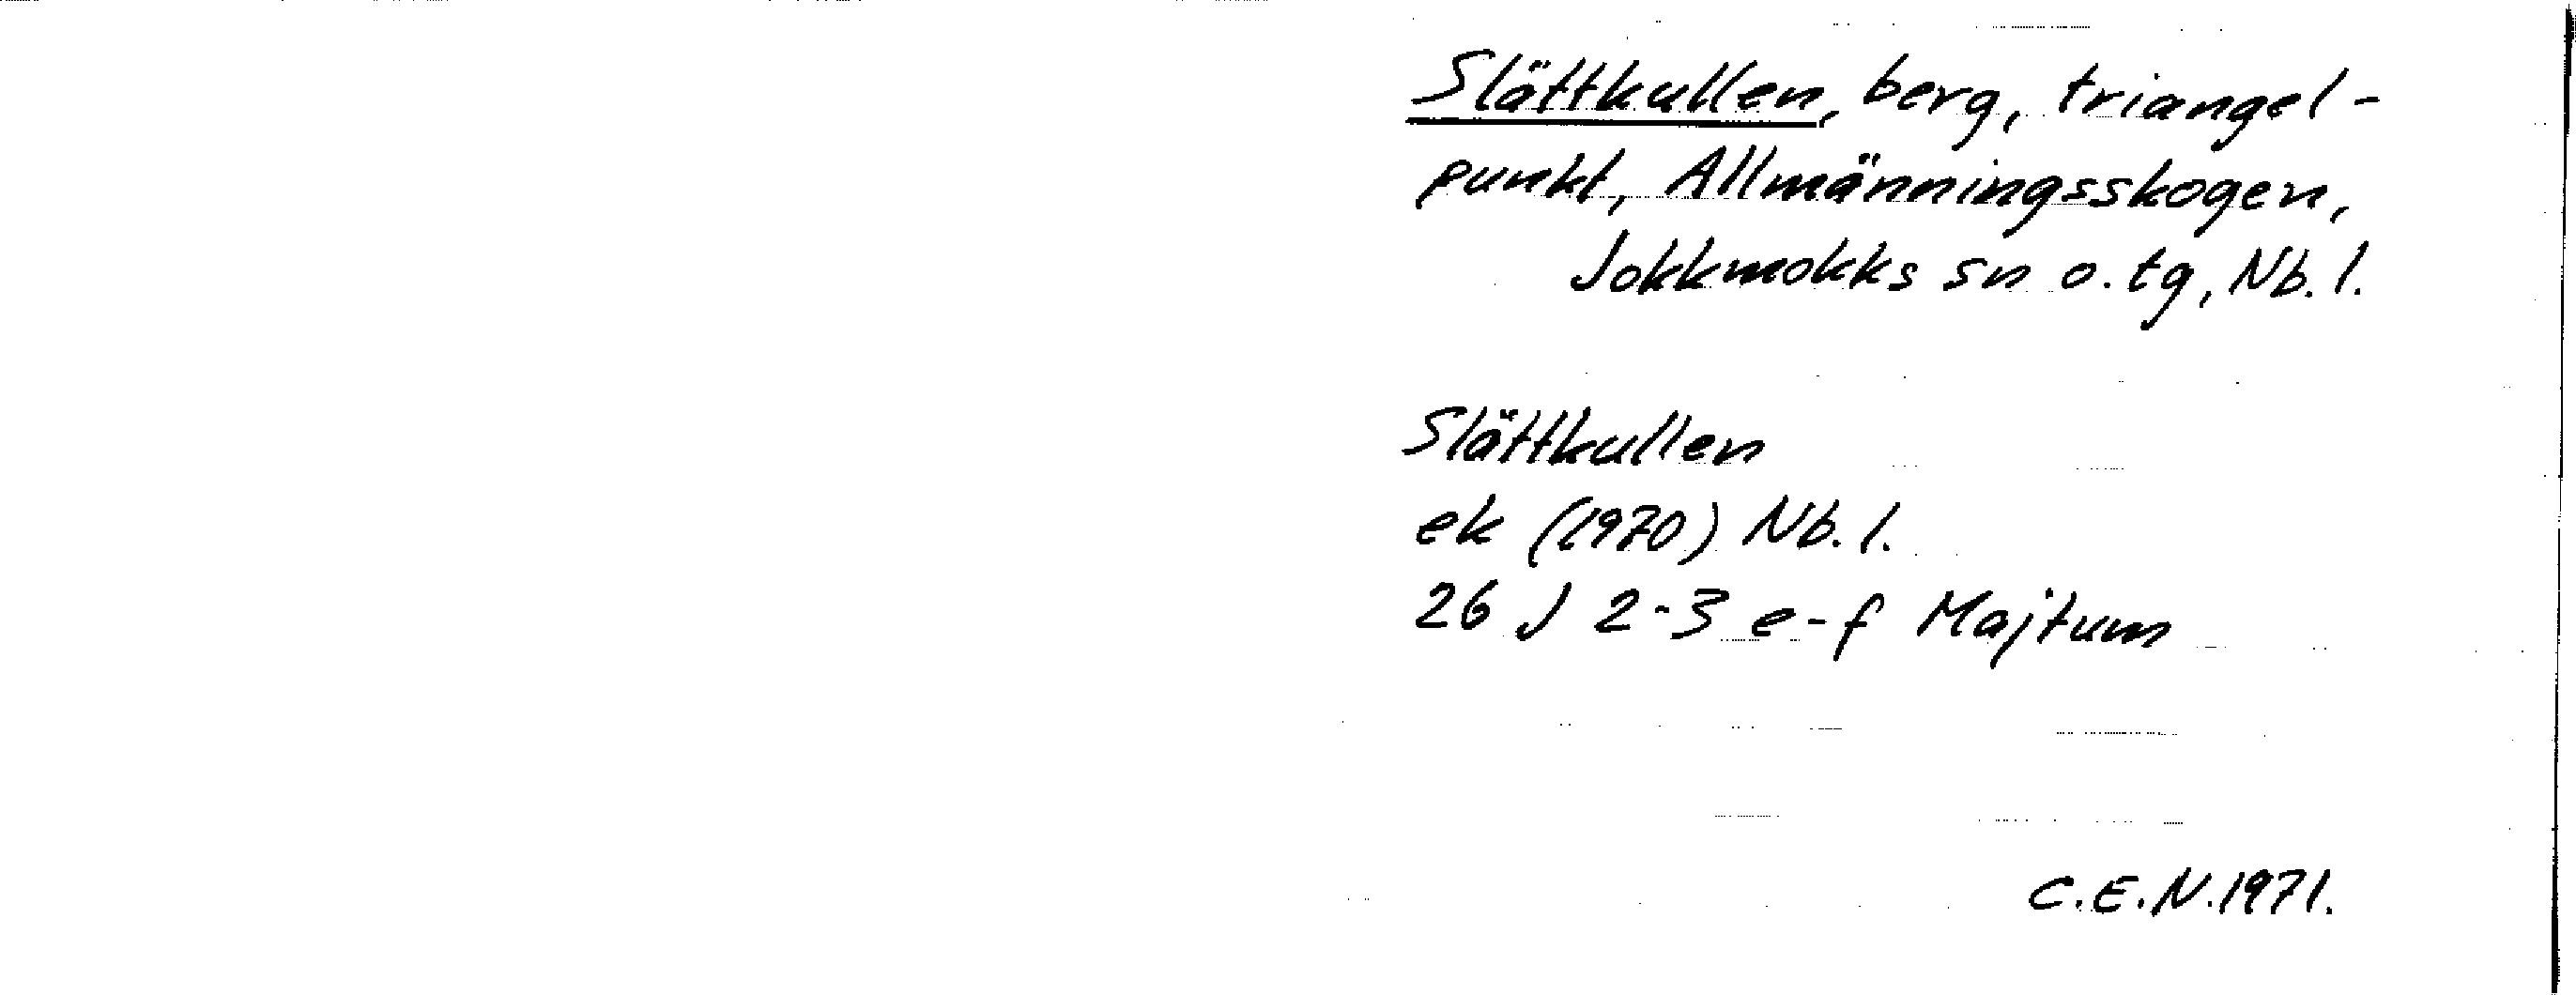 Slättkullen, berg, triangel-
punkt, Allmänningsskogen,
Jokkmokks sn o. tg, Nb. l.
Slättkullen
ek (1970) Nb. l.
26 J 2-3 e-f Majtum
C.E.N. 1971.